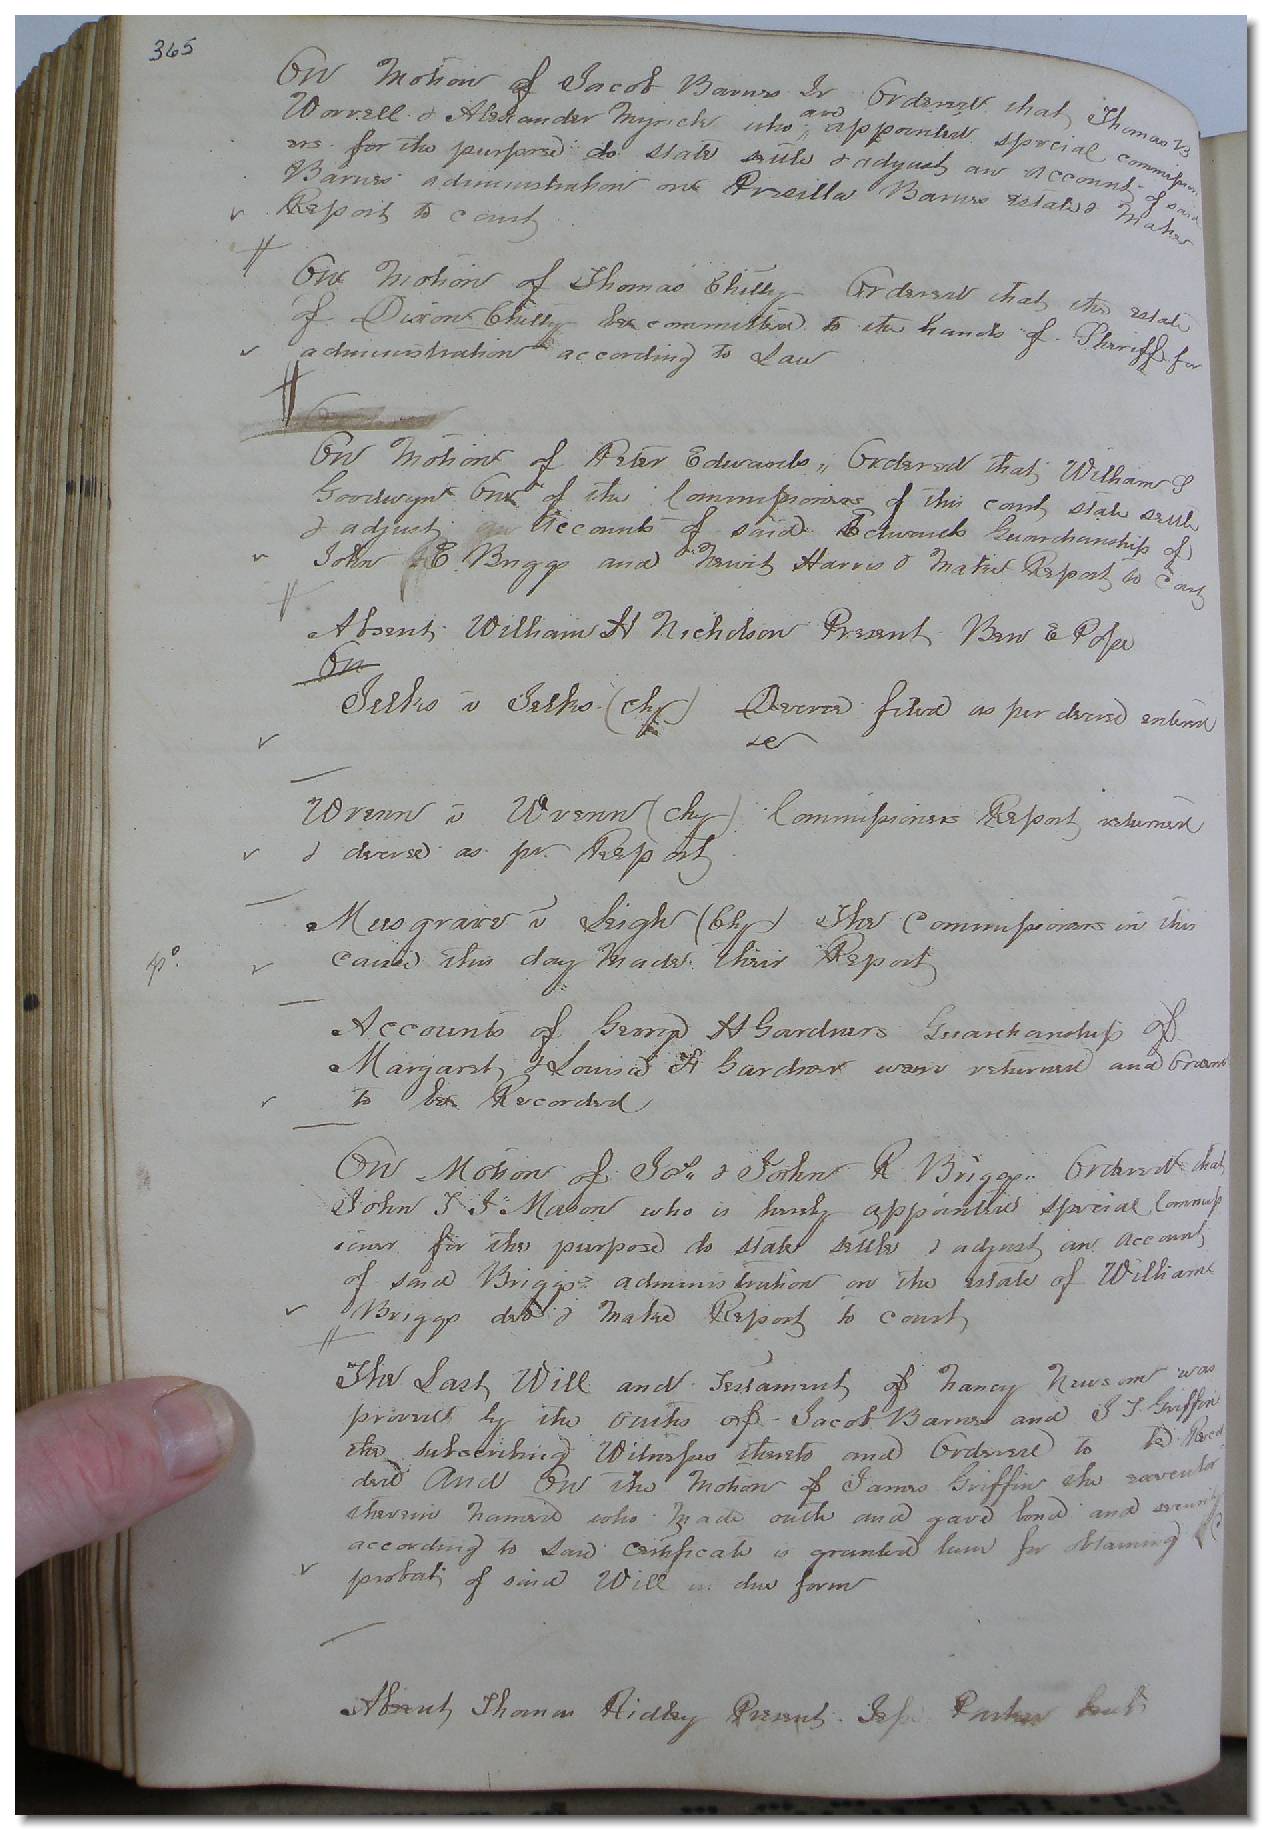 365
On Motion of Jacob Barnes Jr Ordered that Thomas B
Worrell & Alexander Myrick who are appointed special commission
ers for the purpose to state settle & adjust an account of said
Barnes administration on Presilla Barnes estate & Make
Report to court
On Motion of Thomas Chitty Ordered that the estate
of Dixon Chitty be committed to the hands of Sheriff for
administration according to Law
On Motion of Peter Edwards, Ordered that William S
Goodwyn One of the Commissioners of this court state settle
& adjust an Accounts of said Edwards Guardianship of
John E. Briggs and Newit Harris & Make Report to Court
Absent William H Nicholson Present Ben E Pope
On
Jelks v Jelks (chy) Decree filed as per decree entered
Wrenn v Wrenn (chy) Commissioners Report returned
& decree as pr. Report
Musgrave v Leigh (Chy) The Commissioners in this
cause this day Made their Report
Accounts of George H Gardners Guardianship of
Margaret & Louisa H Gardner were returned and Ordered
to be Recorded
On Motion of Jos. & John R Briggs.. Ordered that
John T J Mason who is hereby appointed special Commiss
ioner for the purpose to state settle & adjust an account
of said Briggs administration on the estate of William
Briggs decd & Make Report to court
The Last Will and Testament of Nancy Newsom was
proved by the oaths of Jacob Barnes and J T Griffin
the subscribing Witnesses thereto and Ordered to be Recor
ded And On the Motion of James Griffin the executor
therein Named who Made oath and gave bond and security
according to Law certificate is granted him for obtaining
probat of said Will in due form
Absent Thomas Ridley Present Parker